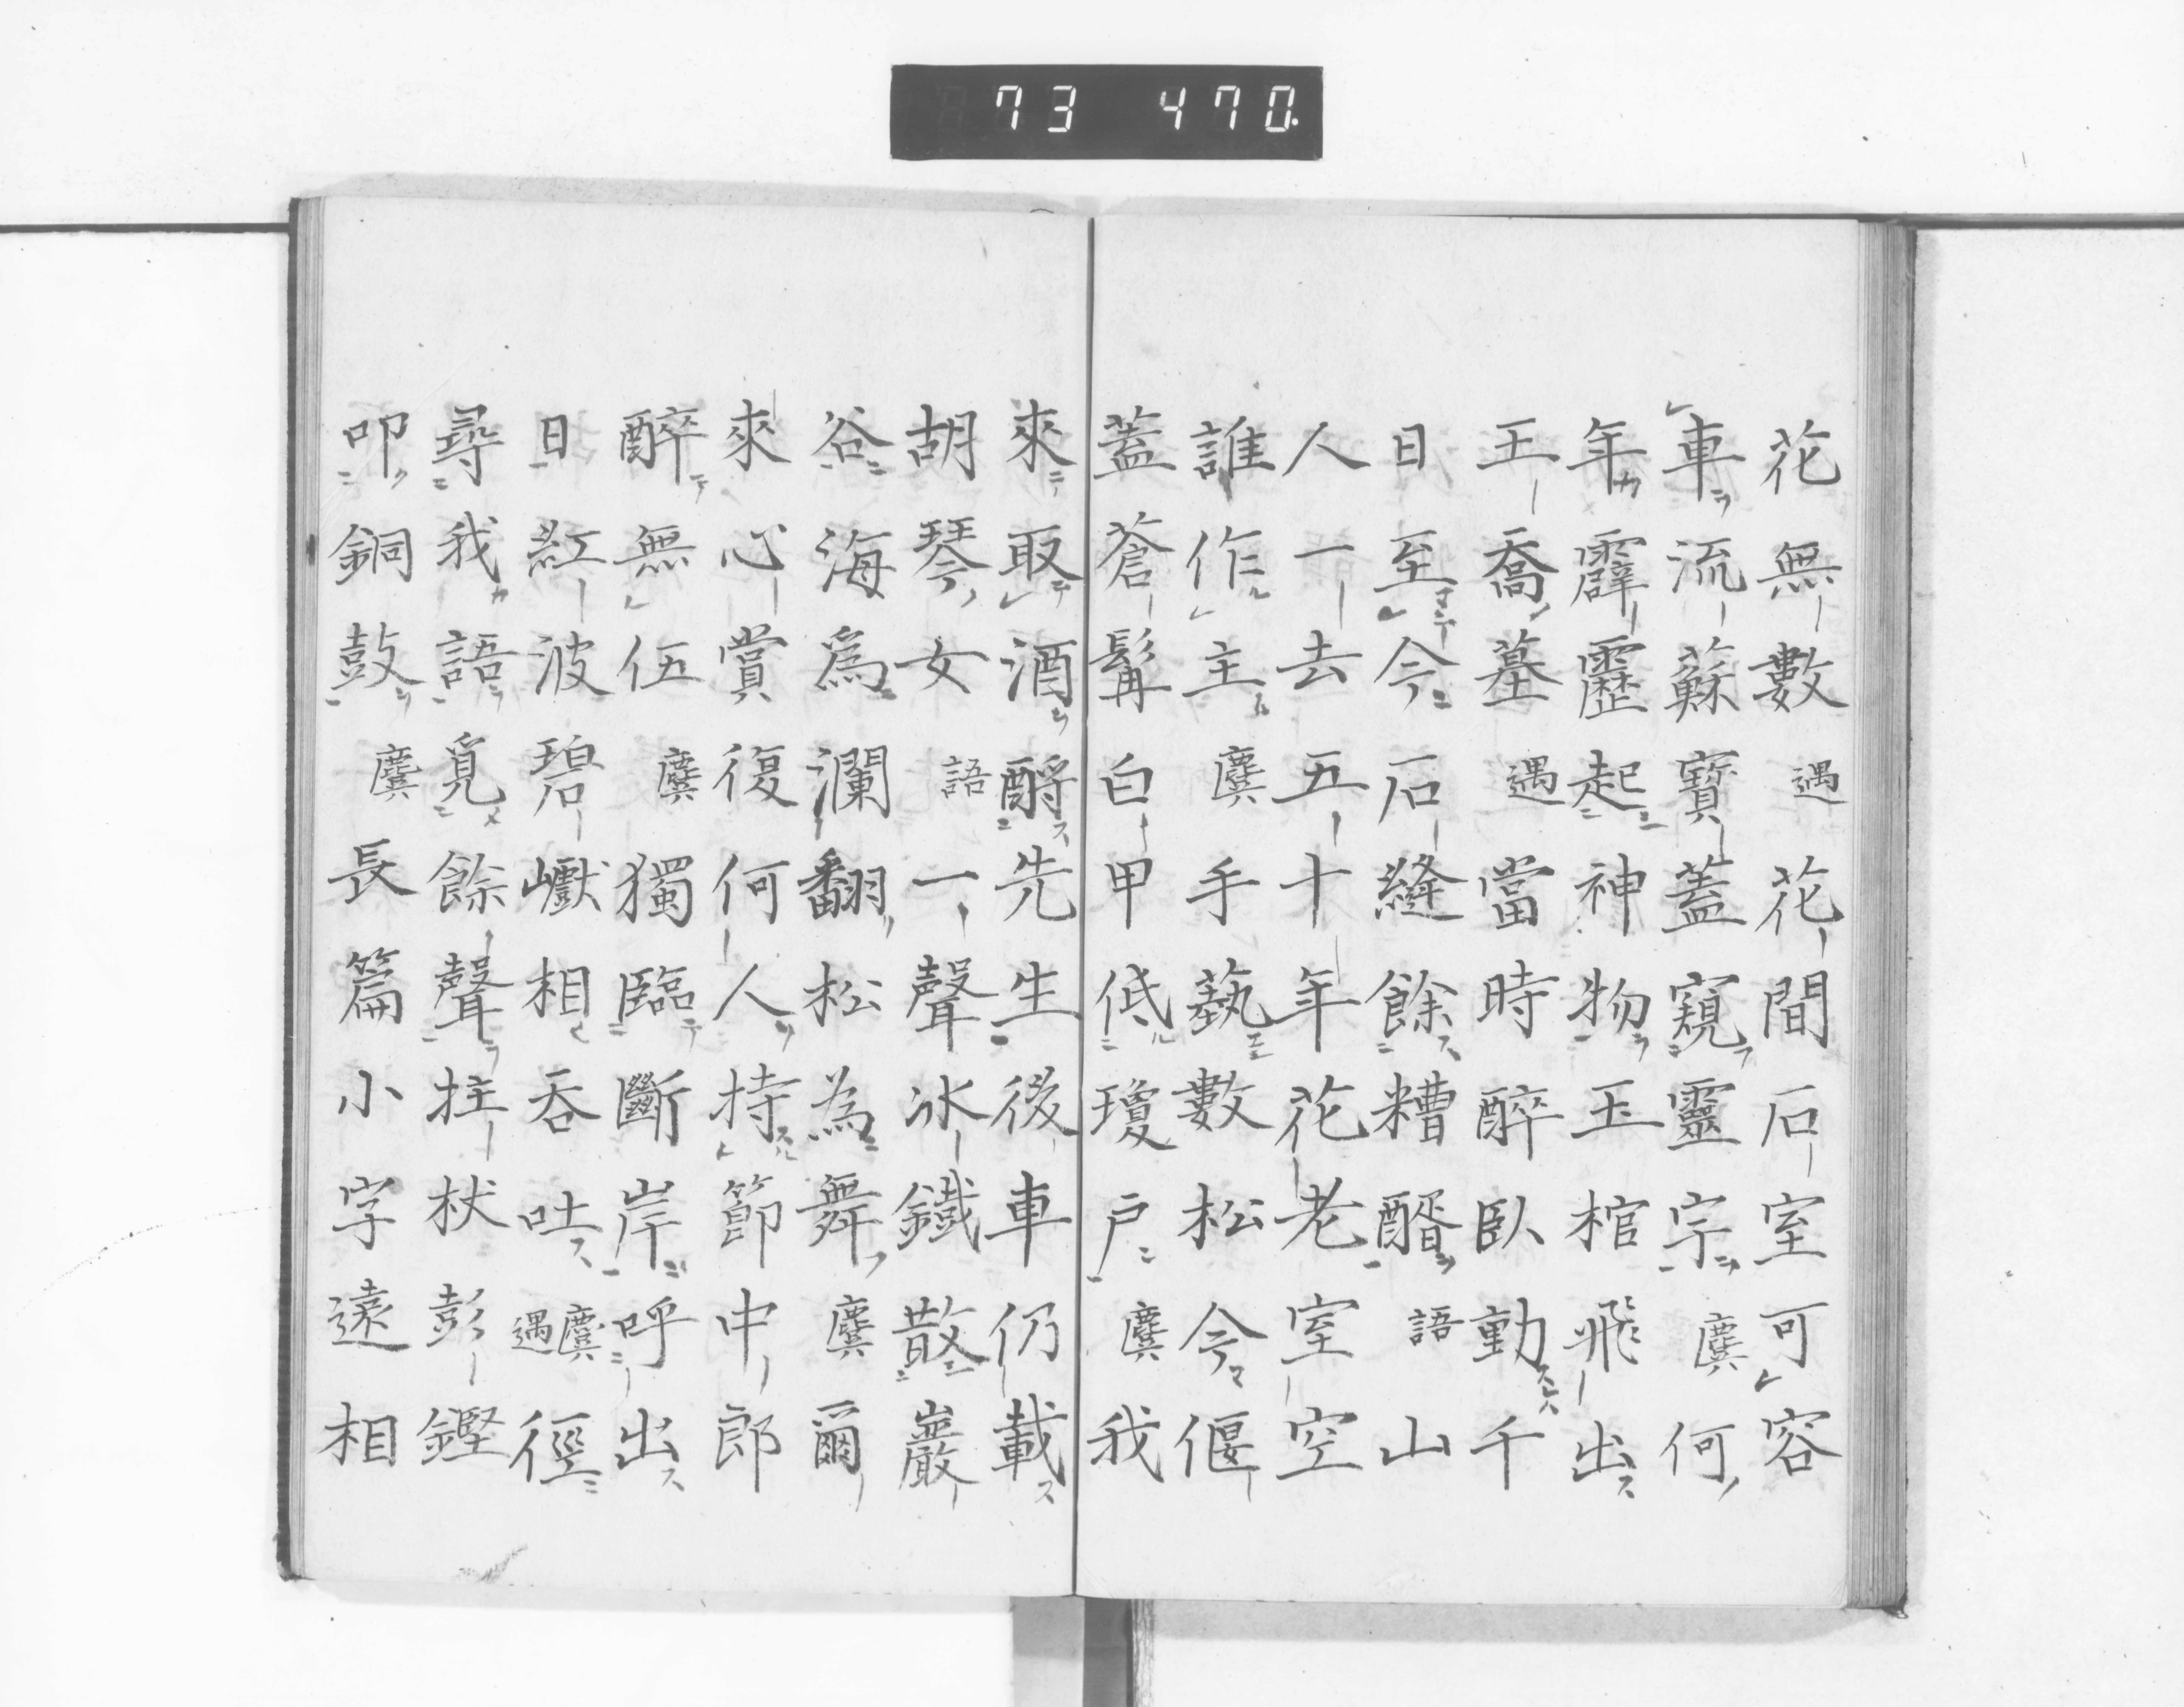 73 470.
花無數遇花間石室可容
車流蘇寶蓋窺靈宗麌何
年霹靂起神物玉棺飛出
王喬墓遇當時醉臥動千
日至今石縫餘糟醑語山
人一去五十年花老室空
誰作主麌手蓺數松今偃
蓋蒼髯白甲低瓊戶麌我
來取酒酹先生後車仍載
胡琴女語一聲冰鐵散巖
谷海為瀾翻松為舞麌爾
來心賞復何人持節中郎
醉無伍麌獨臨斷岸呼出
日紅波碧巘相吞吐麌遇徑
尋我語覓餘聲拄杖彭鏗
叩銅鼓麌長篇小字遠相